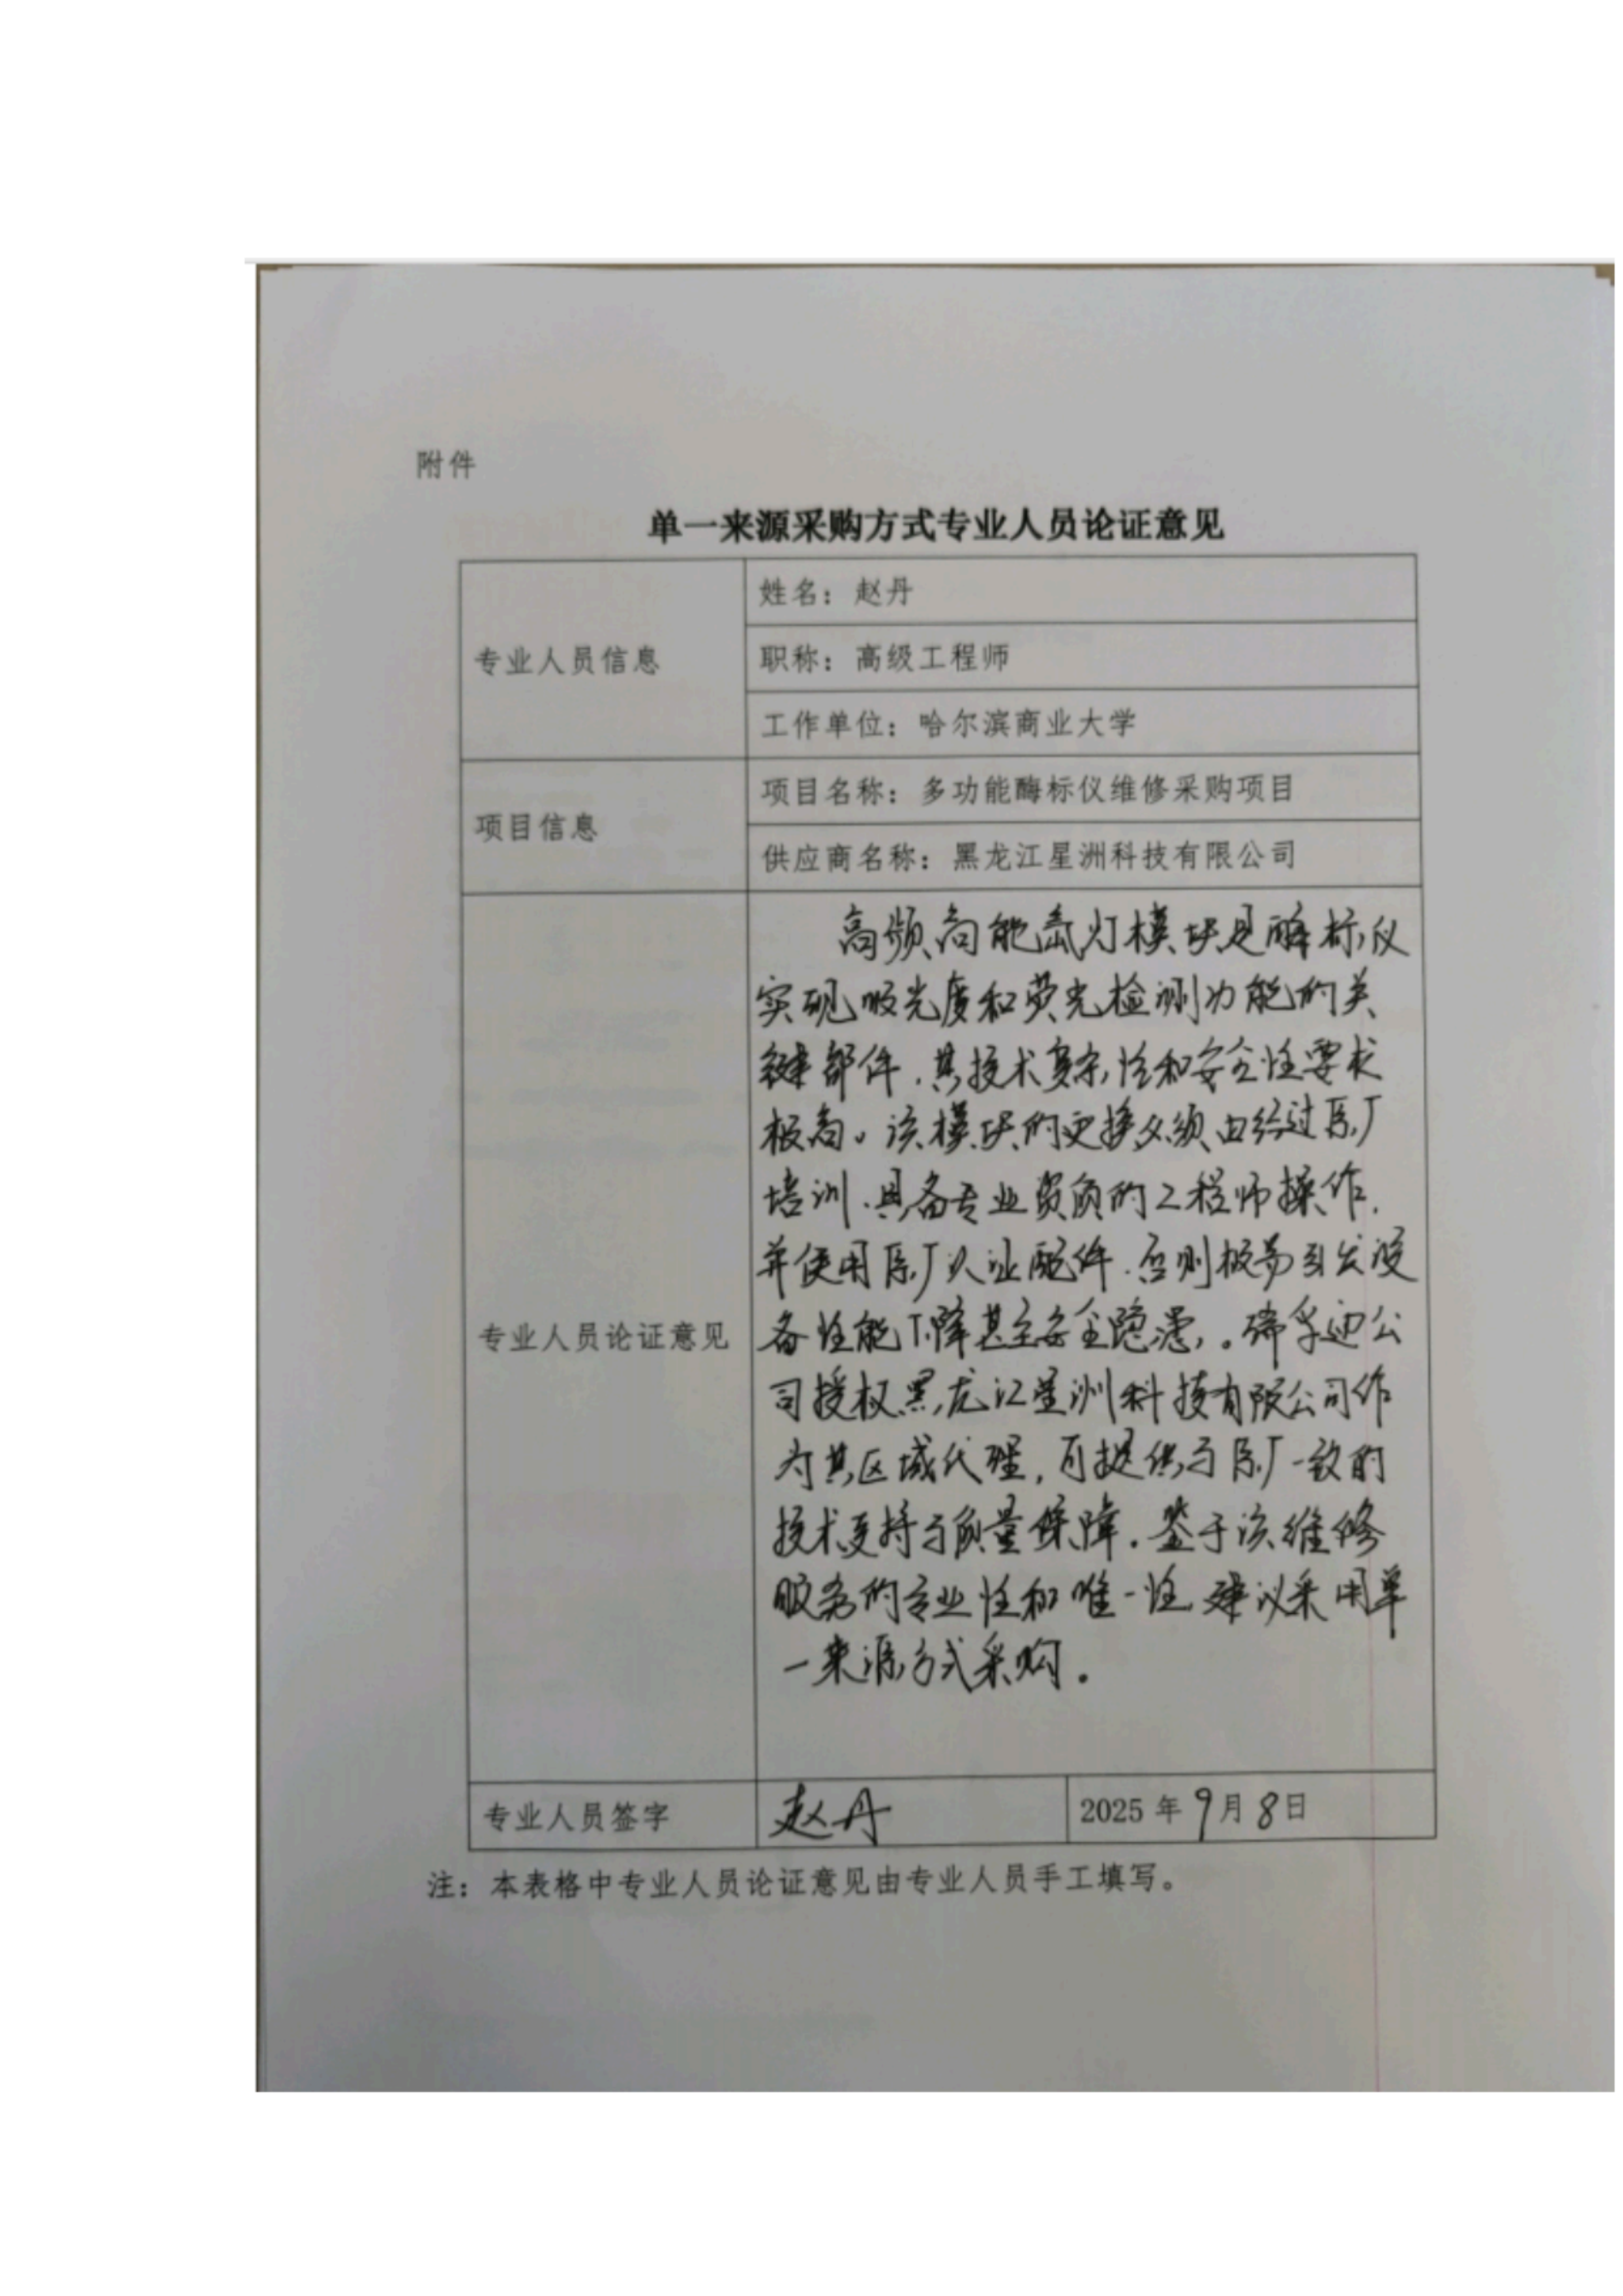 附件
单一来源采购方式专业人员论证意见
专业人员信息
姓名：赵丹
职称：高级工程师
工作单位：哈尔滨商业大学
项目信息
项目名称：多功能酶标仪维修采购项目
供应商名称：黑龙江星洲科技有限公司
专业人员论证意见
高频高能氙灯模块是酶标仪
实现吸光度和荧光检测功能的关
键部件，其技术复杂性和安全性要求
极高。该模块的更换必须由经过原厂
培训、具备专业资质的工程师操作，
并使用原厂认证配件，否则极易引发设
备性能下降甚至安全隐患。珀孚迪公
司授权黑龙江星洲科技有限公司作
为其区域代理，可提供与原厂一致的
技术支持与质量保障。鉴于该维修
服务的专业性和唯一性，建议采用单
一来源方式采购。
专业人员签字
赵丹
2025年9月8日
注：本表格中专业人员论证意见由专业人员手工填写。